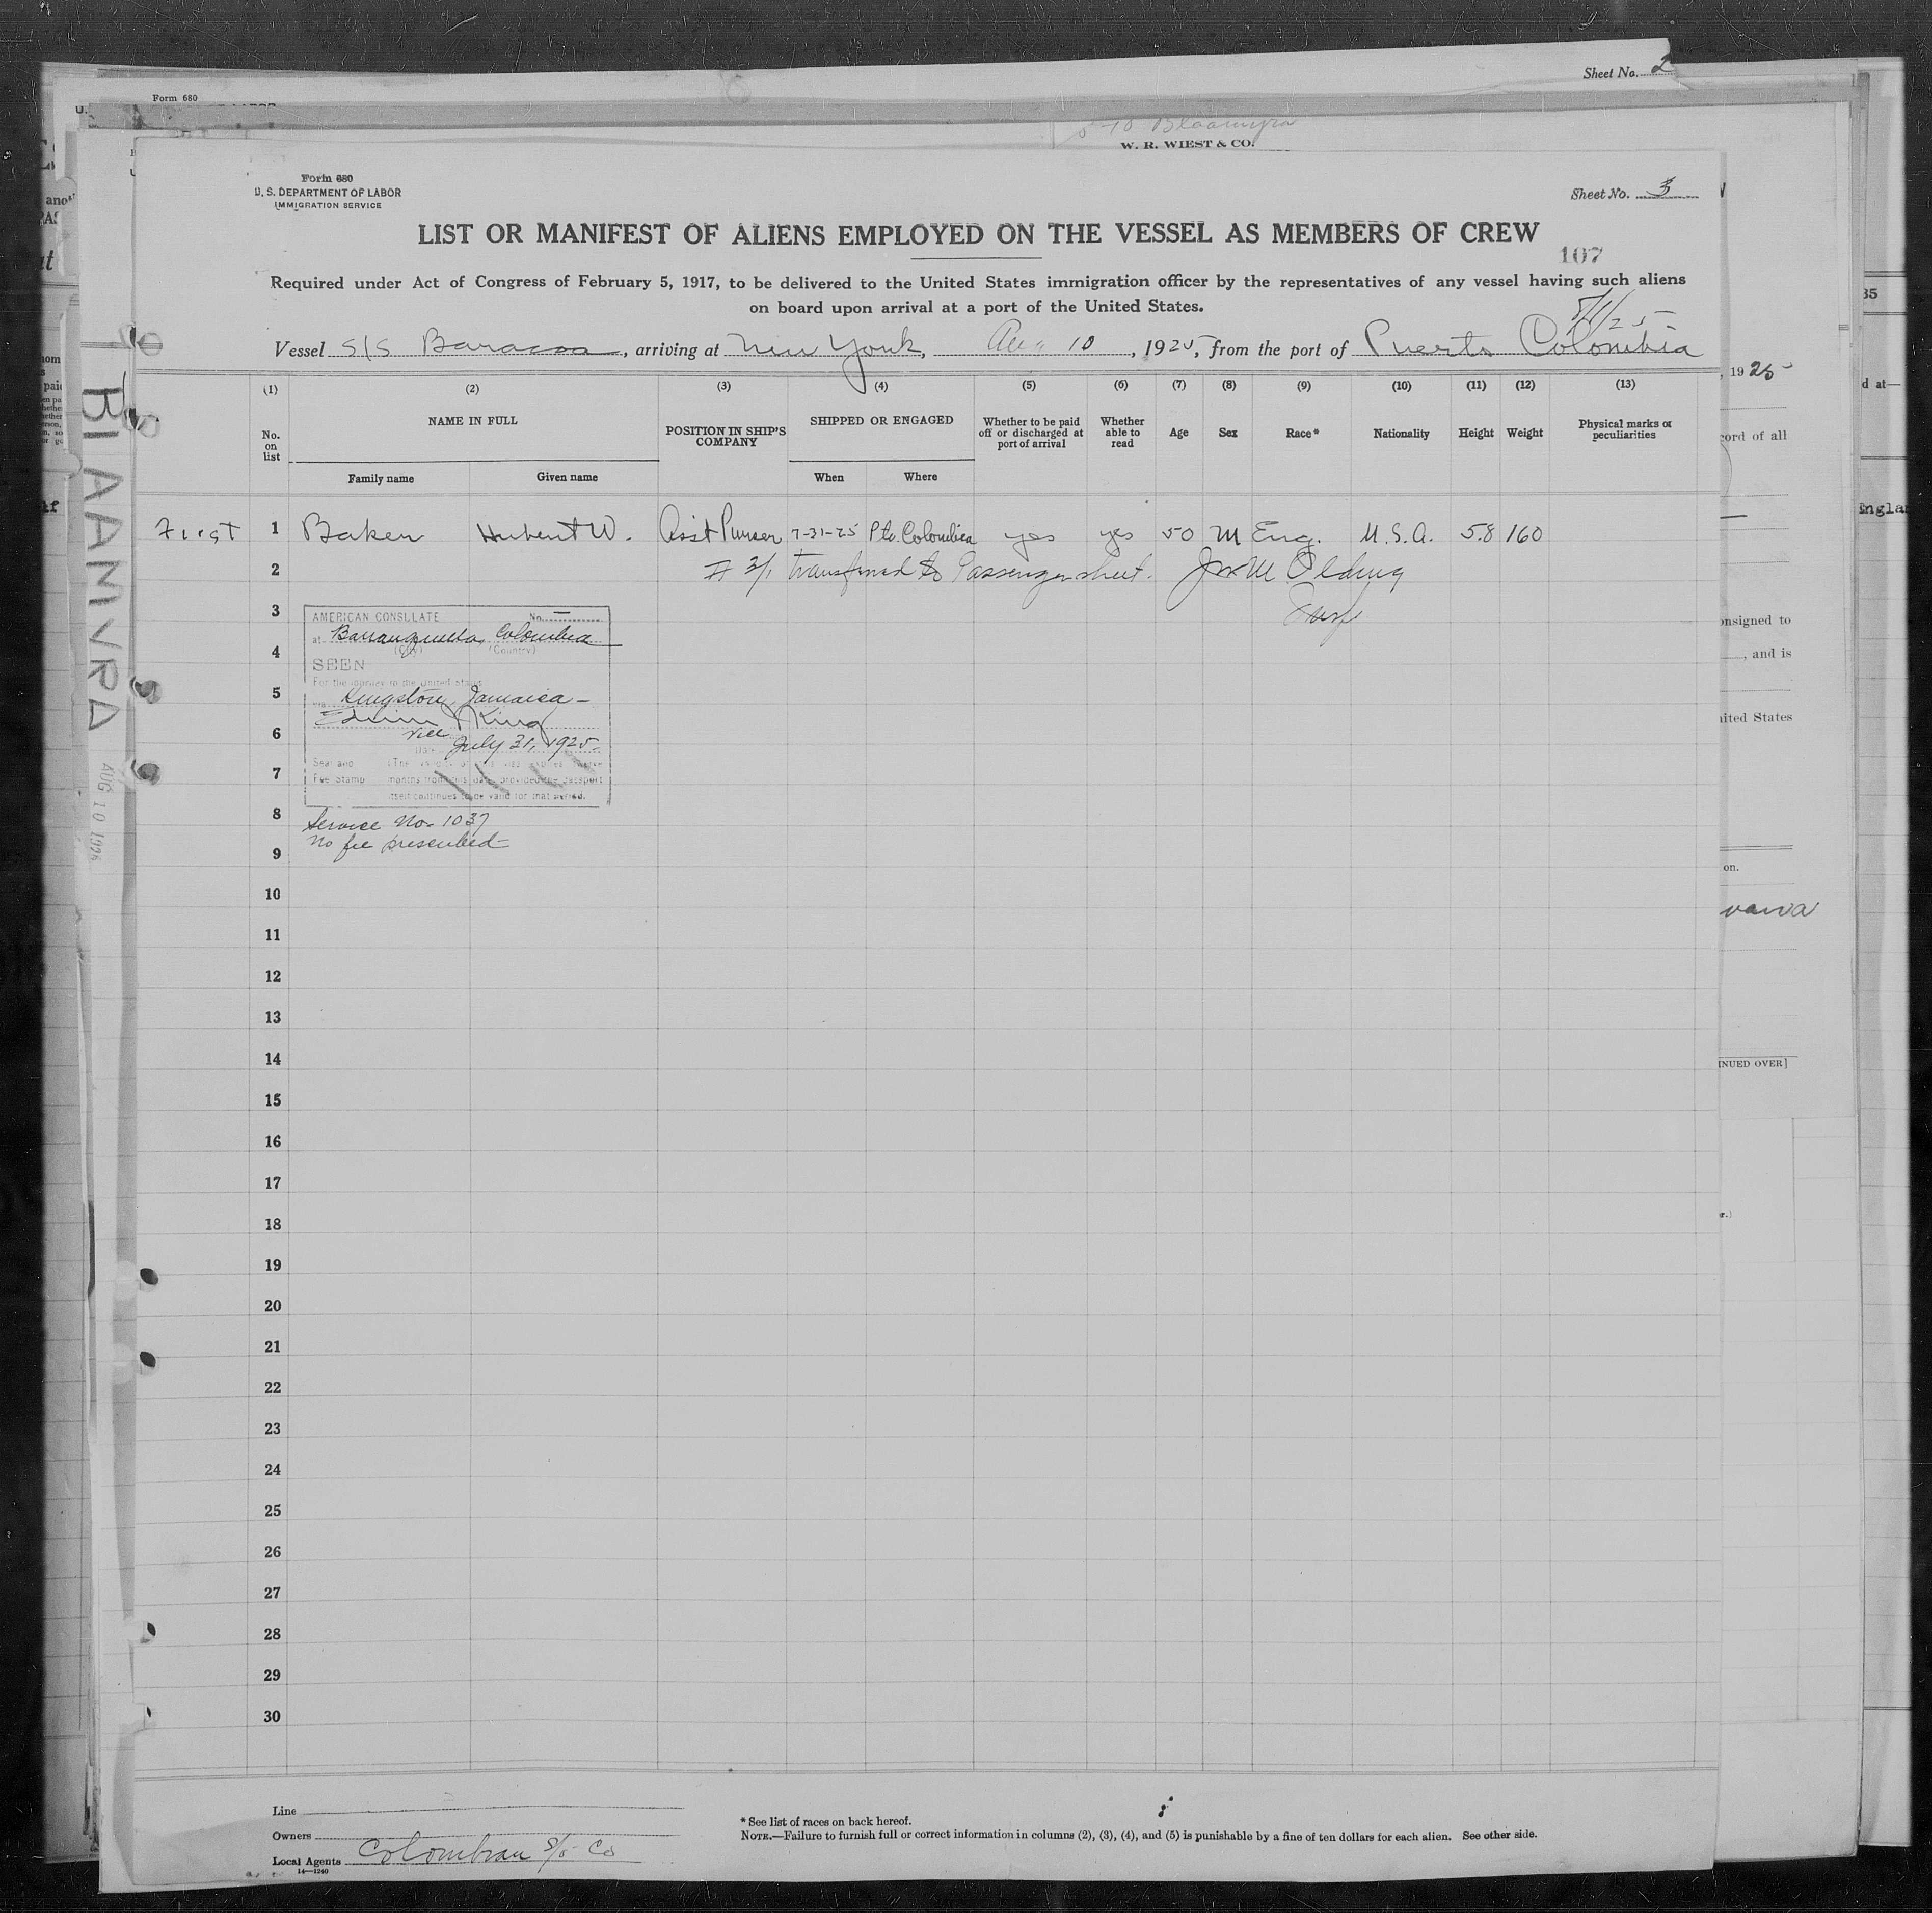 Sheet No. 2
Form 680
W. R. WIEST & CO.
Form 680
U. S. DEPARTMENT OF LABOR
IMMIGRATION SERVICE
Sheet No. 3
LIST OR MANIFEST OF ALIENS EMPLOYED ON THE VESSEL AS MEMBERS OF CREW
107
Required under Act of Congress of February 5, 1917, to be delivered to the United States immigration officer by the representatives of any vessel having such aliens
on board upon arrival at a port of the United States.
Vessel S/S Baracoa, arriving at New York, Aug 10, 1925, from the port of Puerto Colombia
(1) (2) (3) (4) (5) (6) (7) (8) (9) (10) (11) (12) (13)
No. on list
NAME IN FULL
Family name Given name
POSITION IN SHIP'S COMPANY
SHIPPED OR ENGAGED
When Where
Whether to be paid off or discharged at port of arrival
Whether able to read
Age
Sex
Race*
Nationality
Height
Weight
Physical marks or peculiarities
First 1 Baker Hubert W. Asst Purser 7-31-25 Pto. Colombia yes yes 50 M Eng. U.S.A. 5.8 160
2 # 3/1 transferred to Passenger sheet.
3
AMERICAN CONSULATE No. —
at Barranquilla, Colombia
(City) (Country)
4
SEEN
For the journey to the United States
5
via Kingston, Jamaica –
Edwin King
6
Vice
Date July 31, 1925.
7
Seal and Fee Stamp
(The validity of this visa expires twelve
months from this date, provided the passport
itself continues to be valid for that period.
8
Service No. 1037
No fee prescribed
9
10
11
12
13
14
15
16
17
18
19
20
21
22
23
24
25
26
27
28
29
30
Line
Owners
Local Agents Colombian S/S Co
14—1240
* See list of races on back hereof.
NOTE.—Failure to furnish full or correct information in columns (2), (3), (4), and (5) is punishable by a fine of ten dollars for each alien. See other side.
AUG 10 192
, 1925
cord of all
onsigned to
, and is
ited States
on.
INUED OVER]